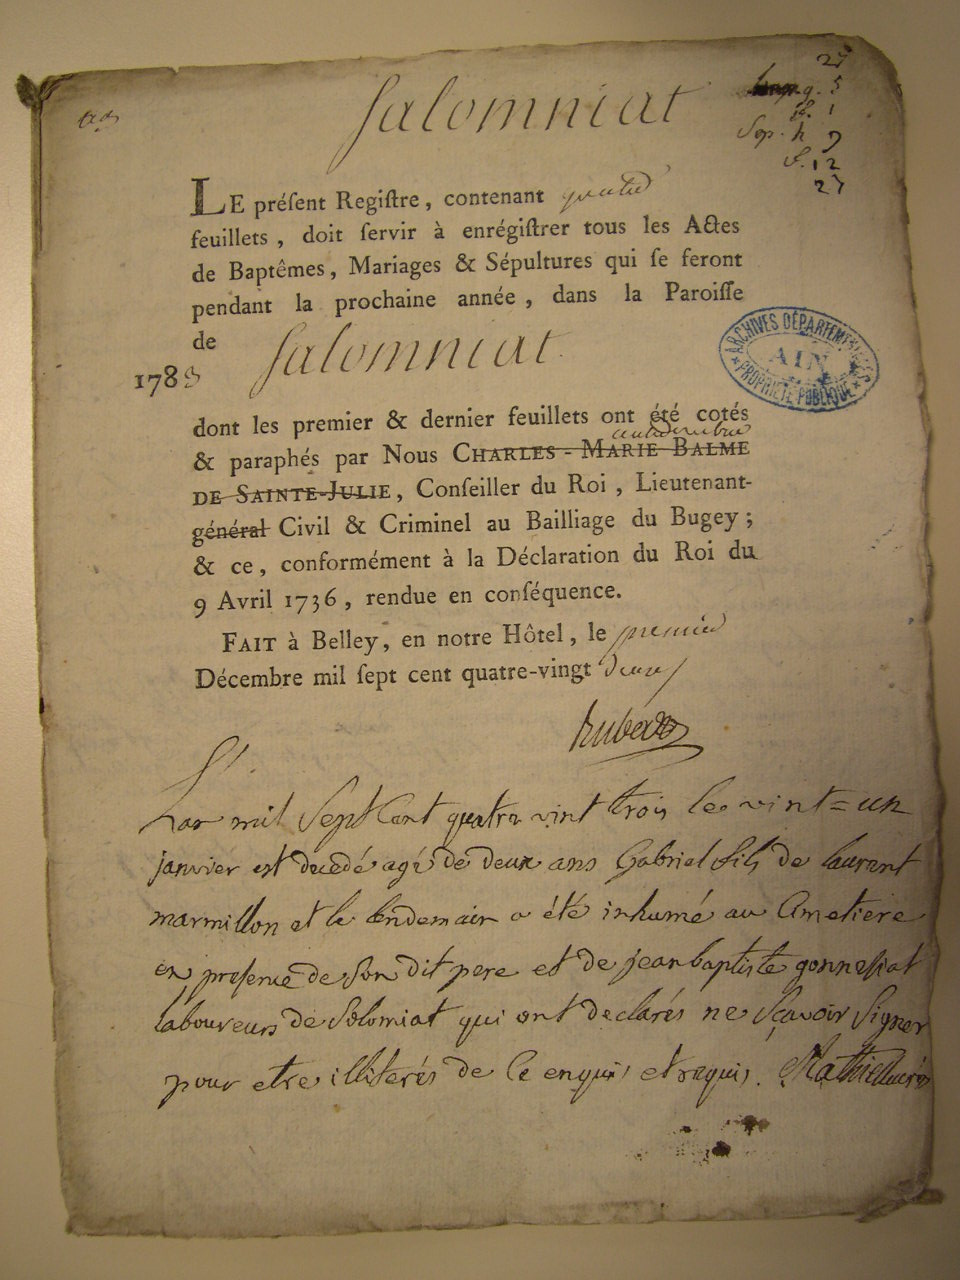 Salomniat
27
g. 5
f. 1
Sep. h 9
f. 12
27
LE préſent Regiſtre, contenant quatre
feuillets, doit ſervir à enrégiſtrer tous les Actes
de Baptêmes, Mariages & Sépultures qui ſe feront
pendant la prochaine année, dans la Paroiſſe
de Salomniat
1783
ARCHIVES DÉPARTEMENTALES
AIN
PROPRIÉTÉ PUBLIQUE
dont les premier & dernier feuillets ont été cotés
& paraphés par Nous CHARLES-MARIE BALME
DE SAINTE-JULIE, Conſeiller du Roi, Lieutenant-
général Civil & Criminel au Bailliage du Bugey;
& ce, conformément à la Déclaration du Roi du
9 Avril 1736, rendue en conſéquence.
FAIT à Belley, en notre Hôtel, le premier
Décembre mil ſept cent quatre-vingt deux
L'an mil Sept Cent quatre vint trois le vint=un
janvier est decedé agé de deux ans Gabriel fils de laurent
marmillon et le lendemain a été inhumé au Cimetiere
en presence de son dit pere et de jean baptiste gonnessiat
laboureurs de Solomiat qui ont declarés ne Sçavoir Signer
pour etre illiterés de Ce enquis et requis. Mathieu curé